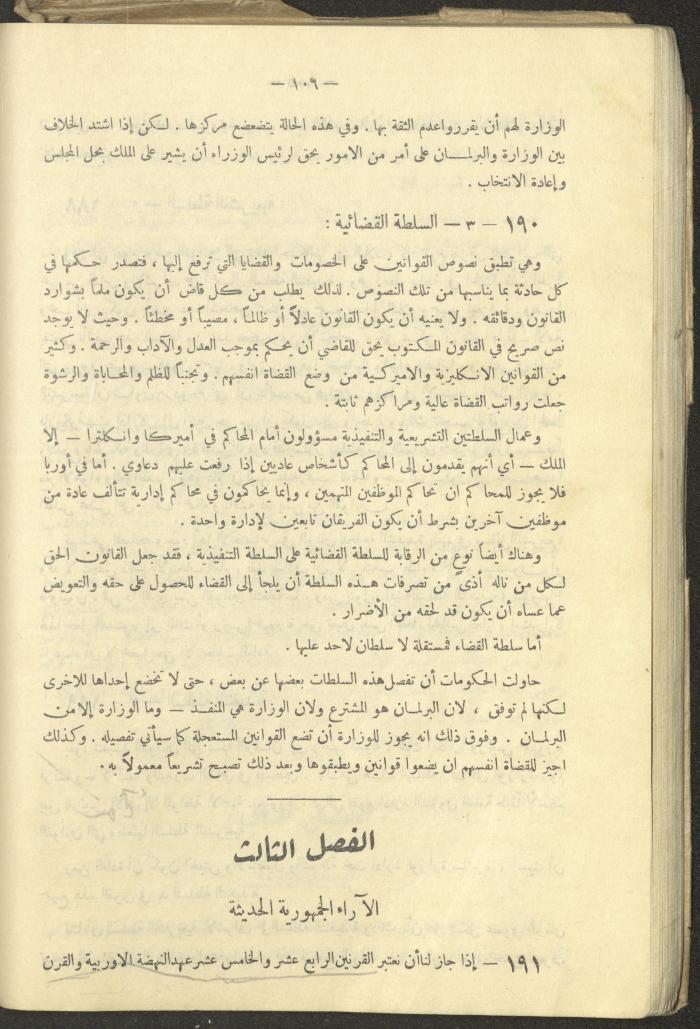 — ١٠٦ —
الوزارة لهم أن يقرروا عدم الثقة بها . وفي هذه الحالة يتضعضع مركزها . لكن إذا اشتد الخلاف
بين الوزارة والبرلمان على أمر من الامور يحق لرئيس الوزراء أن يشير على الملك بحل المجلس
وإعادة الانتخاب .
١٩٠ — ٣ — السلطة القضائية :
وهي تطبق نصوص القوانين على الخصومات والقضايا التي ترفع إليها ، فتصدر حكمها في
كل حادثة بما يناسبها من تلك النصوص . لذلك يطلب من كل قاض أن يكون ملماً بشوارد
القانون ودقائقه . ولا يعنيه أن يكون القانون عادلاً أو ظالماً ، مصيباً أو مخطئاً . وحيث لا يوجد
نص صريح في القانون المكتوب يحق للقاضي أن يحكم بموجب العدل والآداب والرحمة . وكثير
من القوانين الانكليزية والاميركية من وضع القضاة انفسهم . وتجنباً للظلم والمحاباة والرشوة
جعلت رواتب القضاة عالية ومراكزهم ثابتة .
وعمال السلطتين التشريعية والتنفيذية مسؤولون أمام المحاكم في أميركا وانكلترا — إلا
الملك — أي أنهم يقدمون إلى المحاكم كأشخاص عاديين إذا رفعت عليهم دعاوي . أما في أوربا
فلا يجوز للمحاكم ان تحاكم الموظفين المتهمين ، وإنما يحاكمون في محاكم إدارية تتألف عادة من
موظفين آخرين بشرط أن يكون الفريقان تابعين لإدارة واحدة .
وهناك أيضاً نوع من الرقابة للسلطة القضائية على السلطة التنفيذية ، فقد جعل القانون الحق
لكل من ناله أذى من تصرفات هذه السلطة أن يلجأ إلى القضاء للحصول على حقه والتعويض
عما عساه أن يكون قد لحقه من الأضرار .
أما سلطة القضاء فمستقلة لا سلطان لاحد عليها .
حاولت الحكومات أن تفصل هذه السلطات بعضها عن بعض ، حتى لا تخضع إحداها للاخرى
لكنها لم توفق ، لان البرلمان هو المشترع ولان الوزارة هي المنفذ — وما الوزارة إلا من
البرلمان . وفوق ذلك انه يجوز للوزارة أن تضع القوانين المستعجلة كما سيأتي تفصيله . وكذلك
اجيز للقضاة انفسهم ان يضعوا قوانين ويطبقوها وبعد ذلك تصبح تشريعاً معمولاً به .
الفصل الثالث
الآراء الجمهورية الحديثة
١٩١ — إذا جاز لنا أن نعتبر القرنين الرابع عشر والخامس عشر عهد النهضة الاوربية والقرن